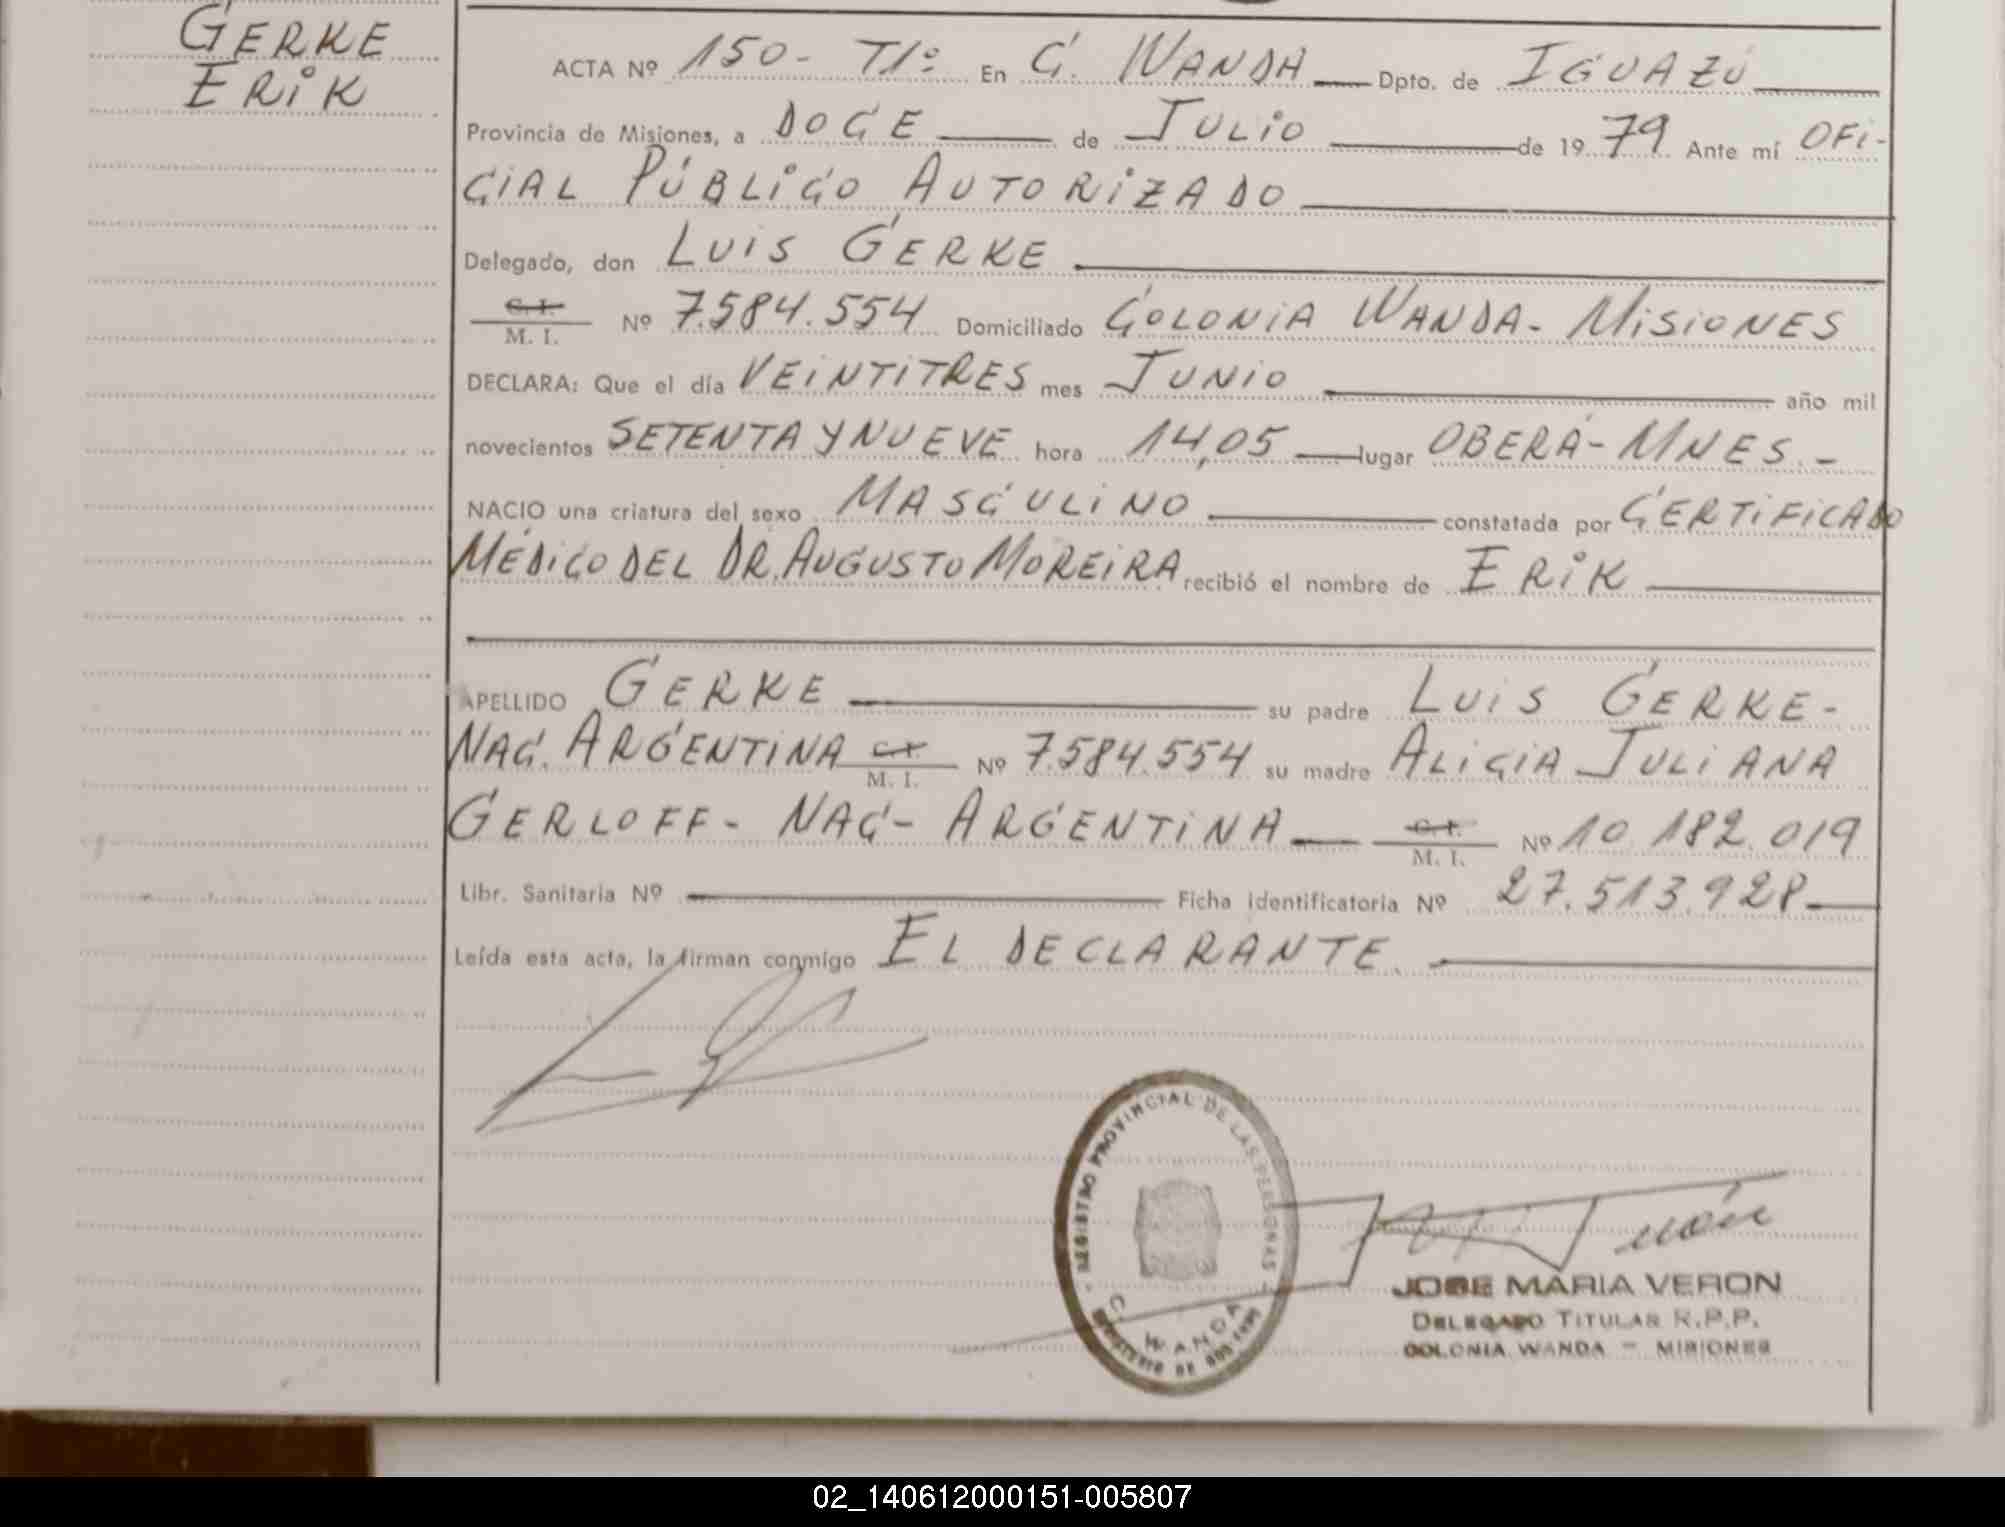 GERKE
ERIK
ACTA Nº 150- T1º En C. WANDA Dpto. de IGUAZÚ
Provincia de Misiones, a DOCE de JULIO de 1979 Ante mí OFI-
CIAL PÚBLICO AUTORIZADO
Delegado, don LUIS GERKE
C. I.
M. I. Nº 7.584.554 Domiciliado COLONIA WANDA- MISIONES
DECLARA: Que el día VEINTITRES mes JUNIO año mil
novecientos SETENTA Y NUEVE hora 14,05 lugar OBERÁ- MNES.-
NACIO una criatura del sexo MASCULINO constatada por CERTIFICADO
MÉDICO DEL DR. AUGUSTO MOREIRA recibió el nombre de ERIK
APELLIDO GERKE su padre LUIS GERKE-
NAC. ARGENTINA C. I. M. I. Nº 7.584.554 su madre ALICIA JULIANA
GERLOFF- NAC- ARGENTINA C. I. M. I. Nº 10.182.019
Libr. Sanitaria Nº Ficha Identificatoria Nº 27.513.928
Leída esta acta, la firman conmigo EL DECLARANTE.
REGISTRO PROVINCIAL DE LAS PERSONAS
C. WANDA
JOSE MARIA VERON
DELEGADO TITULAR R.P.P.
COLONIA WANDA - MISIONES
02_140612000151-005807